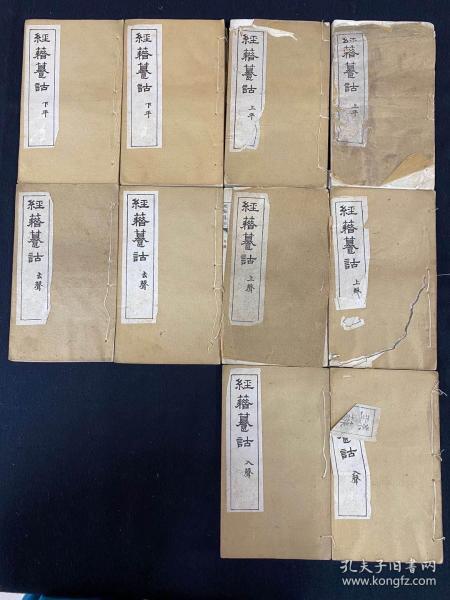 經籍籑詁
下平
經籍籑詁
下平
經籍籑詁
上平
經籍籑詁
上平
經籍籑詁
去聲
經籍籑詁
去聲
經籍籑詁
上聲
經籍籑詁
上聲
經籍籑詁
入聲
籑詁
入聲
孔夫子旧书网
www.kongfz.com